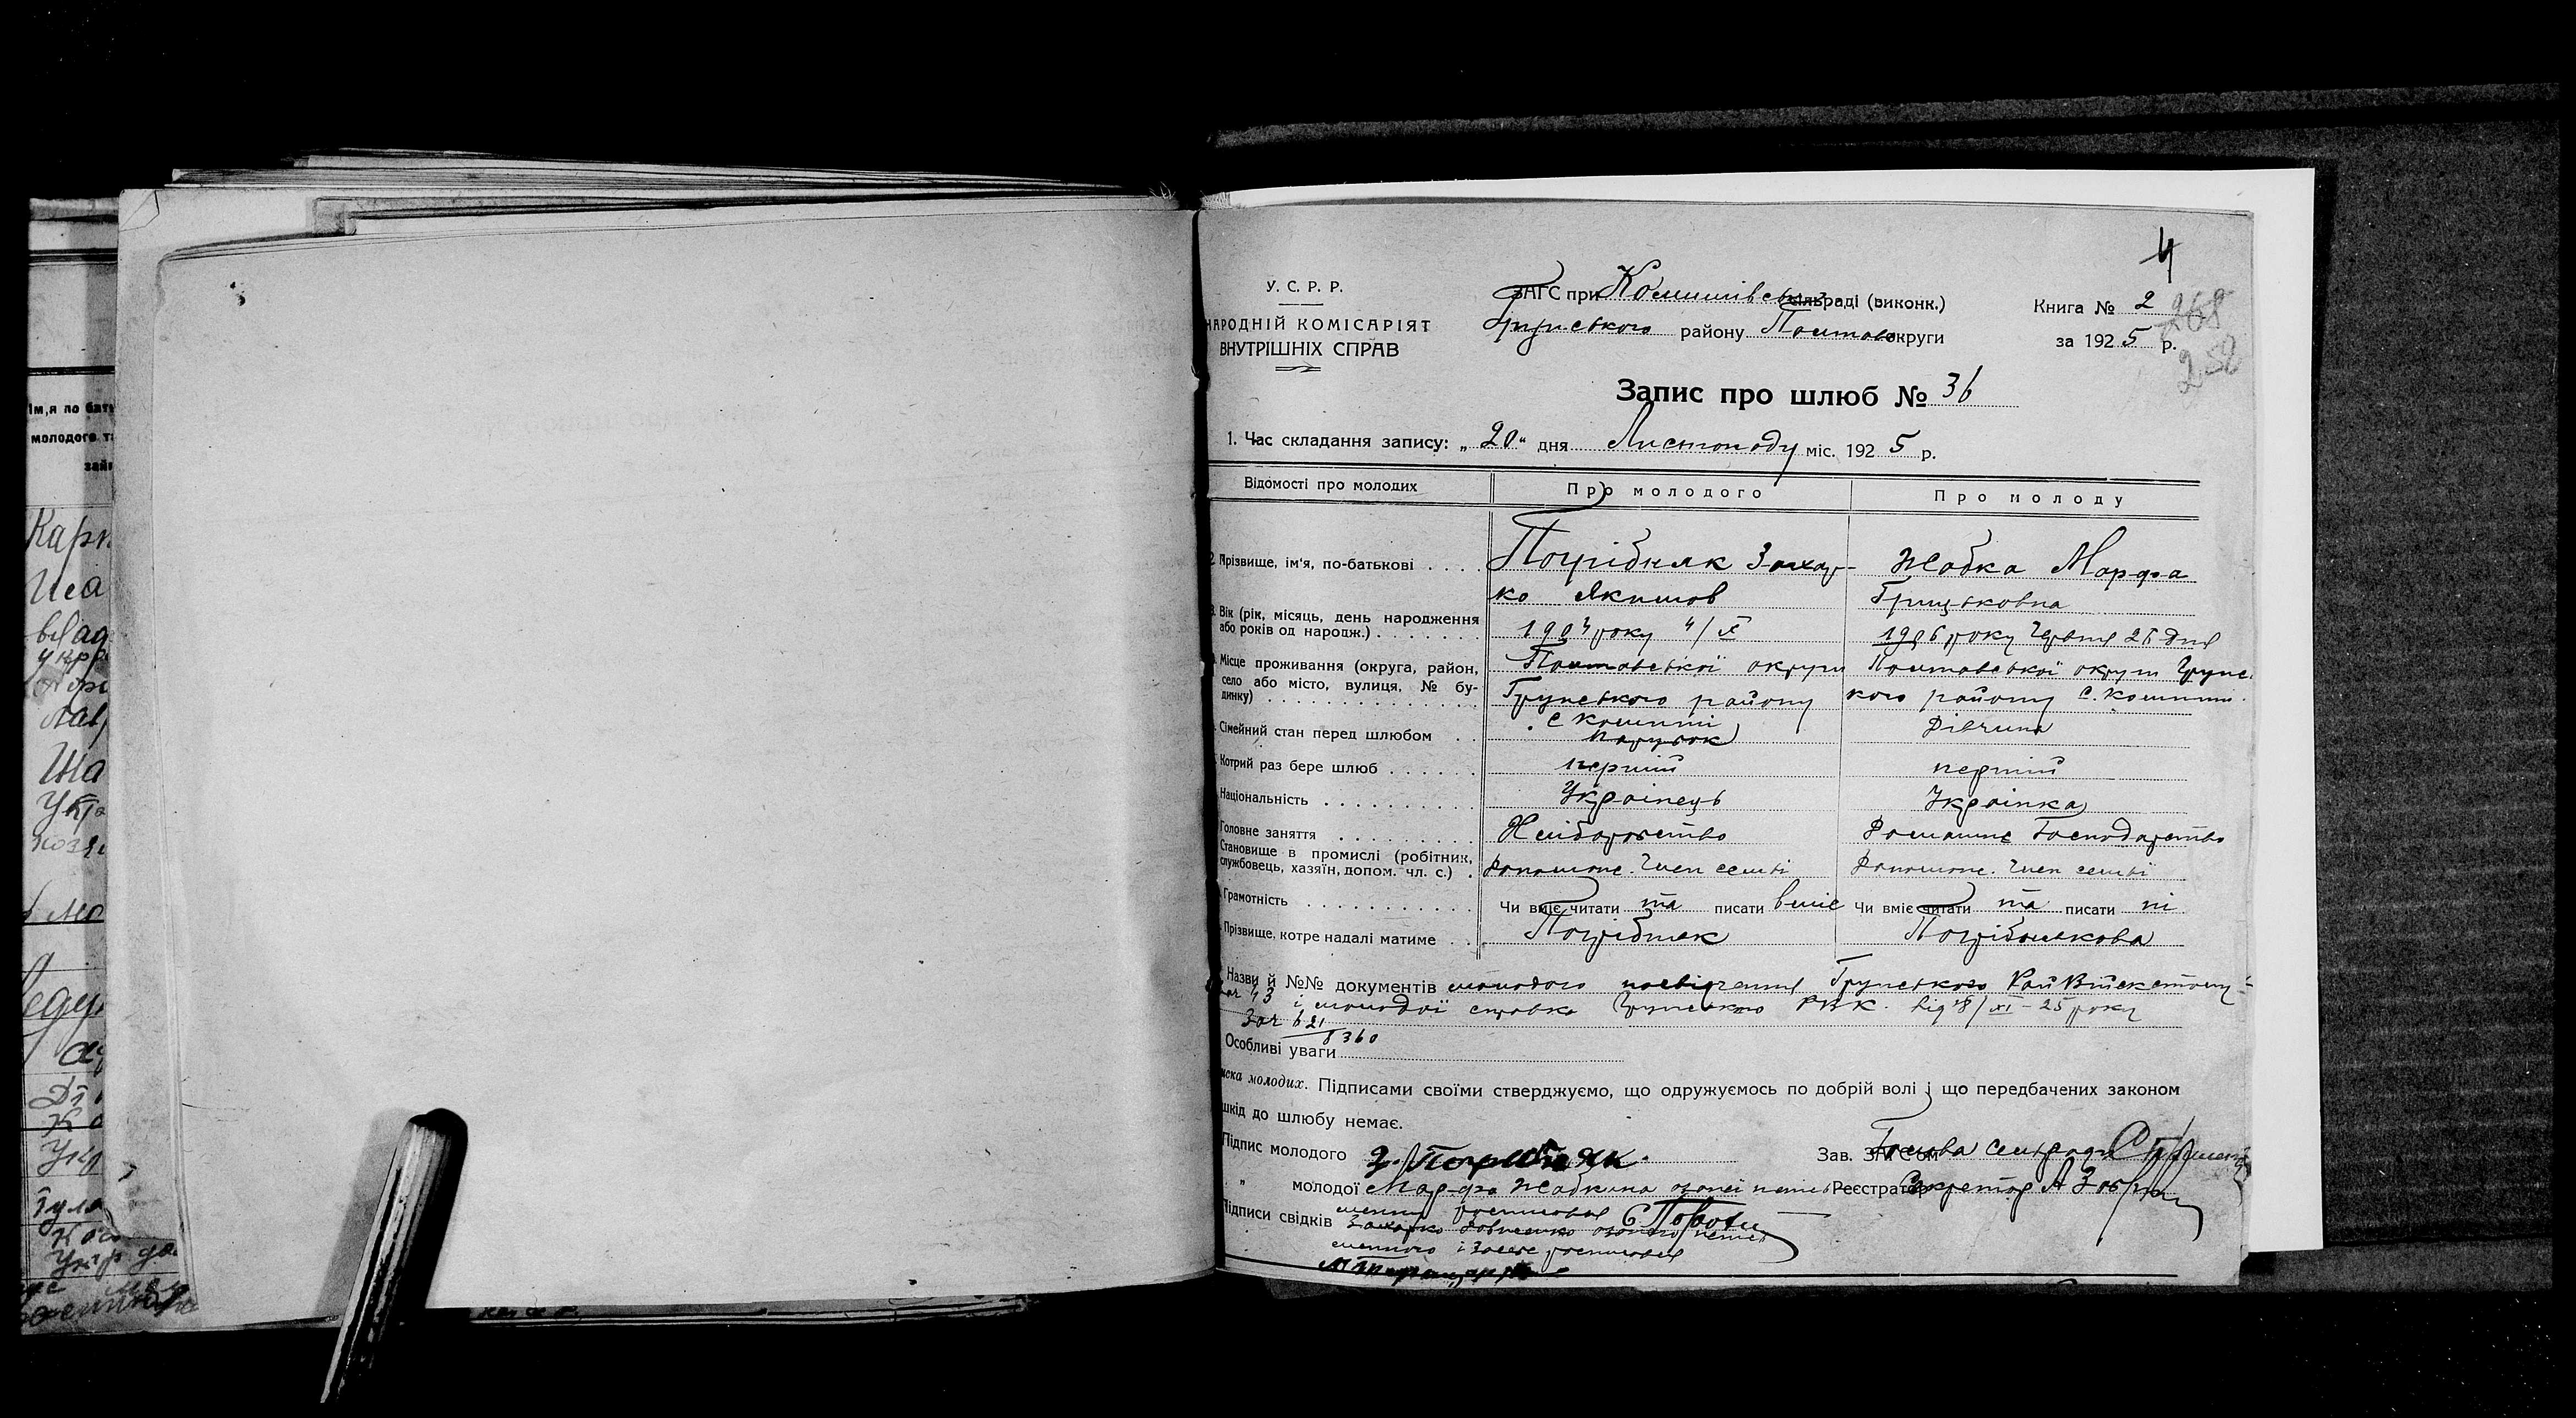 Ім,я по бать
молодого та
Карп
Иса
Укр
4
У. С. Р. Р.
НАРОДНІЙ КОМІСАРІЯТ
ВНУТРІШНІХ СПРАВ
ЗАГС при Комишівській сільраді (виконк.)
Грунського району Полтав округи
Книга № 2
за 1925 р.
268
258
Запис про шлюб № 36
1. Час складання запису: „20“ дня Листопаду міс. 1925 р.
Відомості про молодих
Про молодого
Про молоду
2. Прізвище, ім'я, по-батькові
Погрібняк Захар-
ко Якимов
Жабка Марфа
Грицьковна
3. Вік (рік, місяць, день народження
або років од народж.)
1904 року 4/X
1906 року Червня 26 дня
Місце проживання (округа, район,
село або місто, вулиця, № бу-
динку)
Полтавської округи
Грунського району
с Комиші
Полтавської округи Грунс
кого району с. Комиші
Сімейний стан перед шлюбом
парубок
Дівчина
Котрий раз бере шлюб
перший
перший
Національність
Українець
Українка
Головне заняття
Хліборобство
Домашнє Господарство
Становище в промислі (робітник,
службовець, хазяїн, допом. чл. с.)
Допомож. Член семьї
Допомож. Член семьї
Грамотність
Чи вміє читати та писати вміє
Чи вміє читати та писати ні
Прізвище, котре надалі матиме
Погрібняк
Погрібнякова
Назви й №№ документів молодого посвідчення Грунського РайВійскстолу
за № 43 і молодої справка Грунського РВК. від 18/XI-25 року
за № 621
8360
Особливі уваги
иска молодих. Підписами своїми стверджуємо, що одружуємось по добрій волі і що передбачених законом
шкід до шлюбу немає.
Підпис молодого З. Погрибняк.
Зав. ЗАГС'ом Голова сельради
„ молодої Марфа Жабкина за неї непись
Реєстратор Секретар А
менну росписався
Підписи свідків
Захарко Довженко за нього непись
менного і за себе росписався